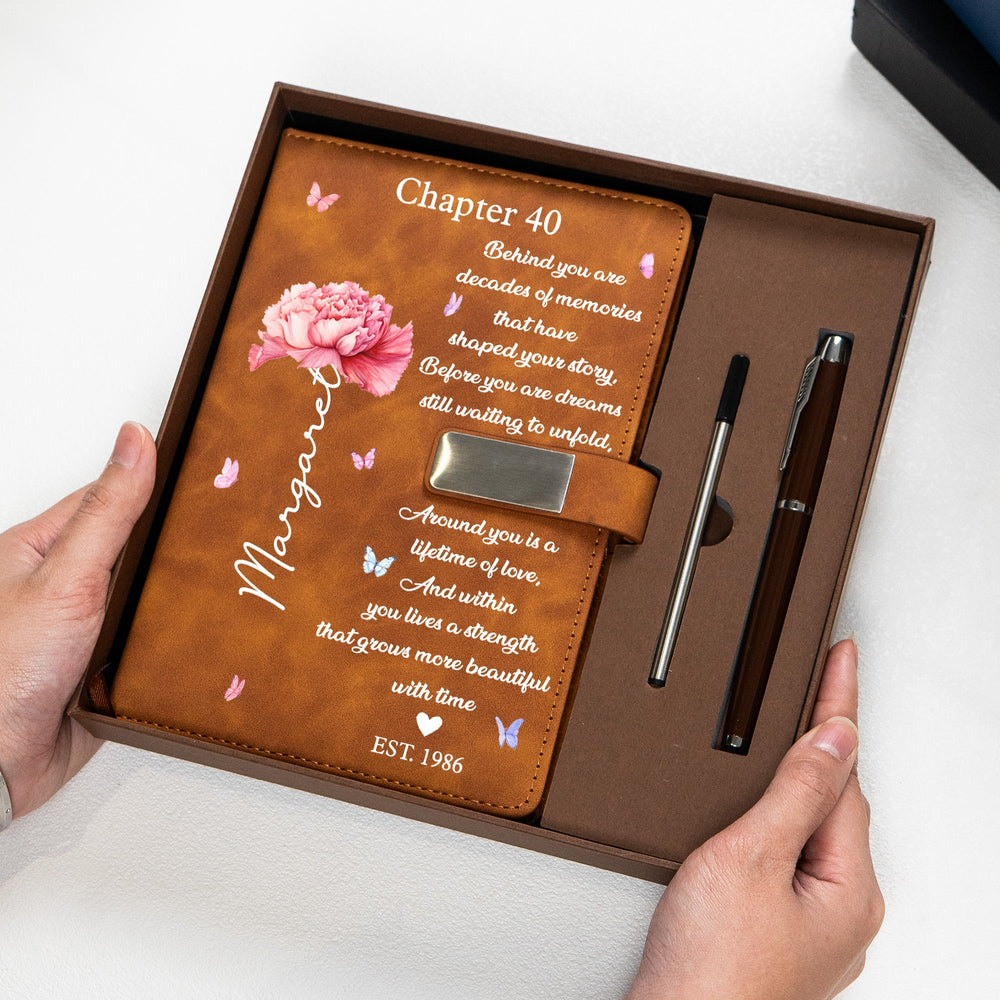 Chapter 40
Behind you are
decades of memories
that have
shaped your story,
Before you are dreams
still waiting to unfold,
Margaret
Around you is a
lifetime of love,
And within
you lives a strength
that grows more beautiful
with time
EST. 1986